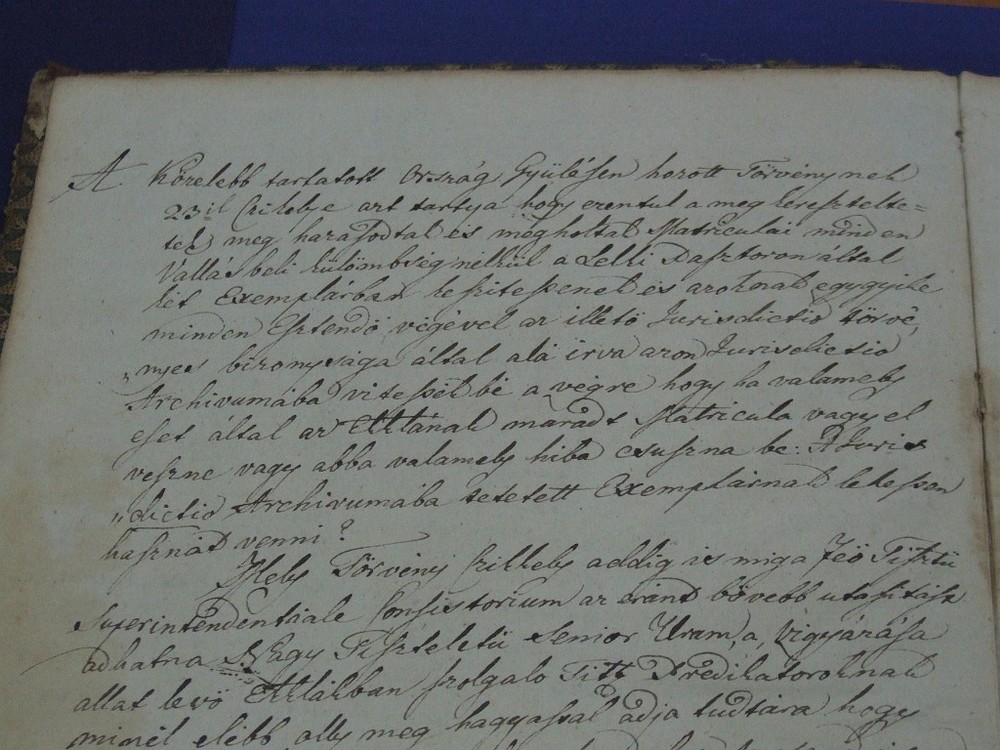 A Közelebb tartatott Ország Gyülésen hozott Törvénynek
23ik Czikelye azt tartya hogy ezentul a meg keresztelte=
tek meg házasodtak és megholtak Matriculái minden
Vallás beli külömbség nélkül a Lelki Pasztorok által
két Exemplárban készitessenek és azoknak egygyike
minden Esztendö végével az illetö Jurisdictio törvé,
„nyes bizonysága által alá irva azon Jurisdictio
Archivumába vitessék bé a végre hogy ha valamely
eset által az Ekklánál maradt Matricula vagy el
veszne vagy abba valamely hiba csuszna be: A Juris
„dictio Archivumába tetetett Exemplárnak lehessen
hasznát venni?
Ily Törvény Czikkely addig is mig a Fö Tisztü
Superintendentiale Consistorium az eránt bövebb utasitást
adhatna Nagy Tiszteletü Senior Uram, a, Vigyázása
allat levö Ekklákban szolgaló Titt Prédikátoroknak
minél elébb olly meg hagyással adja tudtára hogy